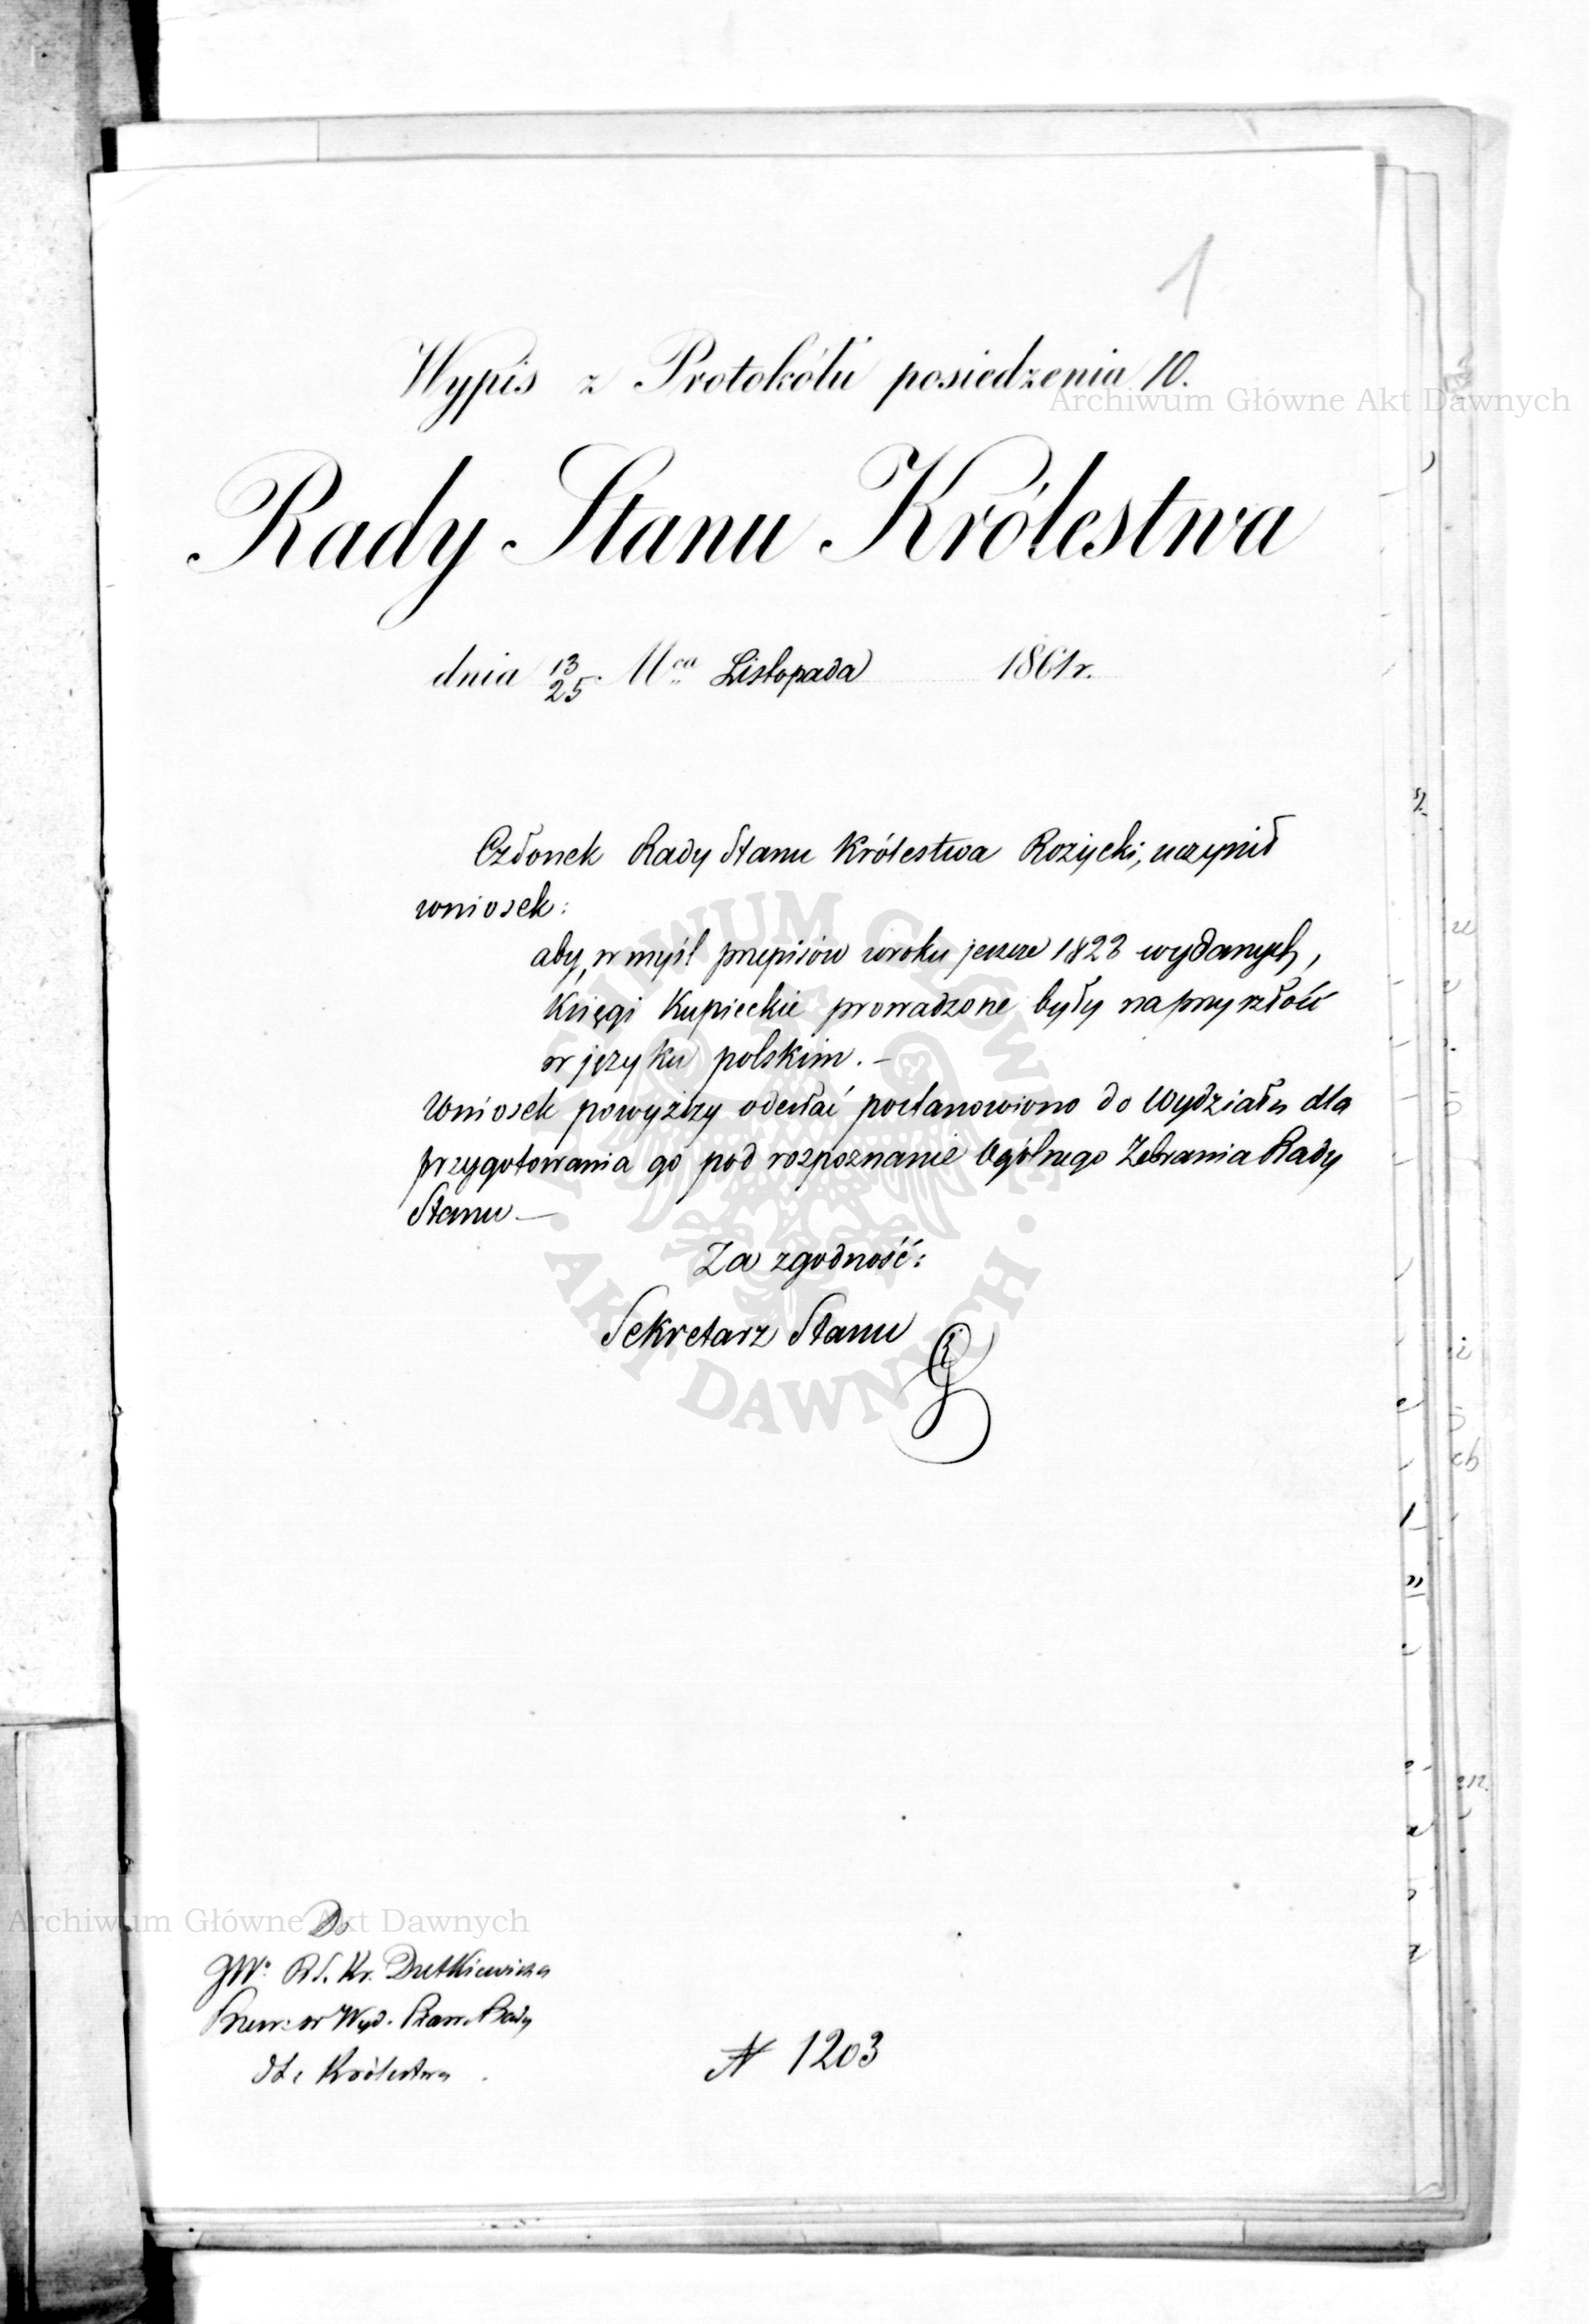 1
Wypis z Protokółu posiedzenia 10.
Archiwum Główne Akt Dawnych
Rady Stanu Królestwa
dnia 13/25. Mca Listopada 1861 r.
Członek Rady Stanu Królestwa Rożycki, uczynił
wniosek:
aby, w myśl przepisów w roku jeszcze 1823 wydanych,
Księgi Kupieckie prowadzone były na przyszłość
w języku polskim. –
Wniosek powyższy odesłać postanowiono do Wydziału dla
przygotowania go pod rozpoznanie Ogólnego Zebrania Rady
Stanu –
Za zgodność:
Sekretarz Stanu
ARCHIWUM GŁÓWNE · AKT DAWNYCH ·
Archiwum Główne Akt Dawnych
Do
JW. R. S. Kr. Dutkiewicza
w Wyd. Praw. Rady
St. Królestwa
N 1203